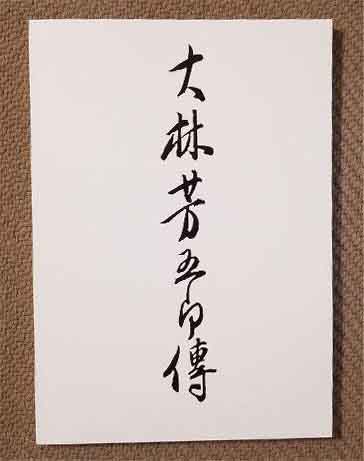 大林芳五郎傳